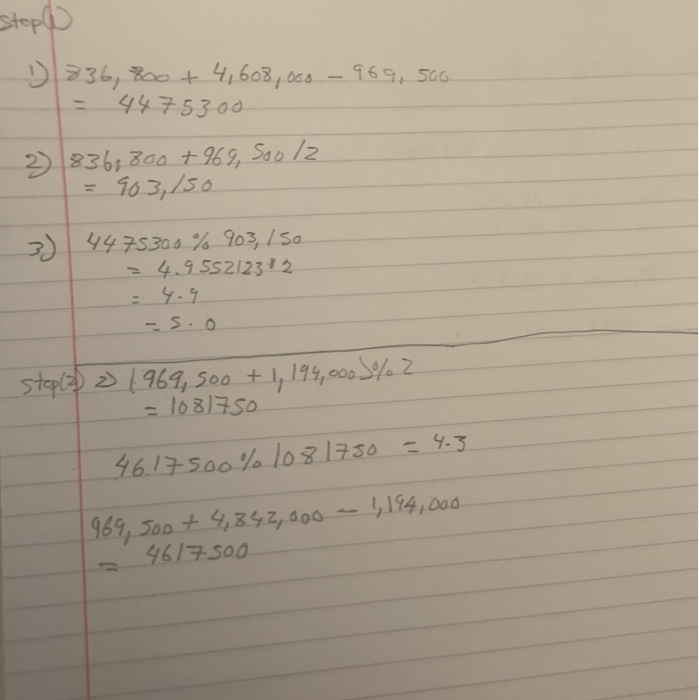 Step(1)
1) 836,800 + 4,608,000 - 969,500
= 4475300
2) 836,800 + 969,500 /2
= 903,150
3) 4475300 % 903,150
= 4.9552123*2
= 4.9
= 5.0
Step(2) 2) (969,500 + 1,194,000)% 2
= 1081750
4617500 % 1081750 = 4.3
969,500 + 4,842,000 - 1,194,000
= 4617500